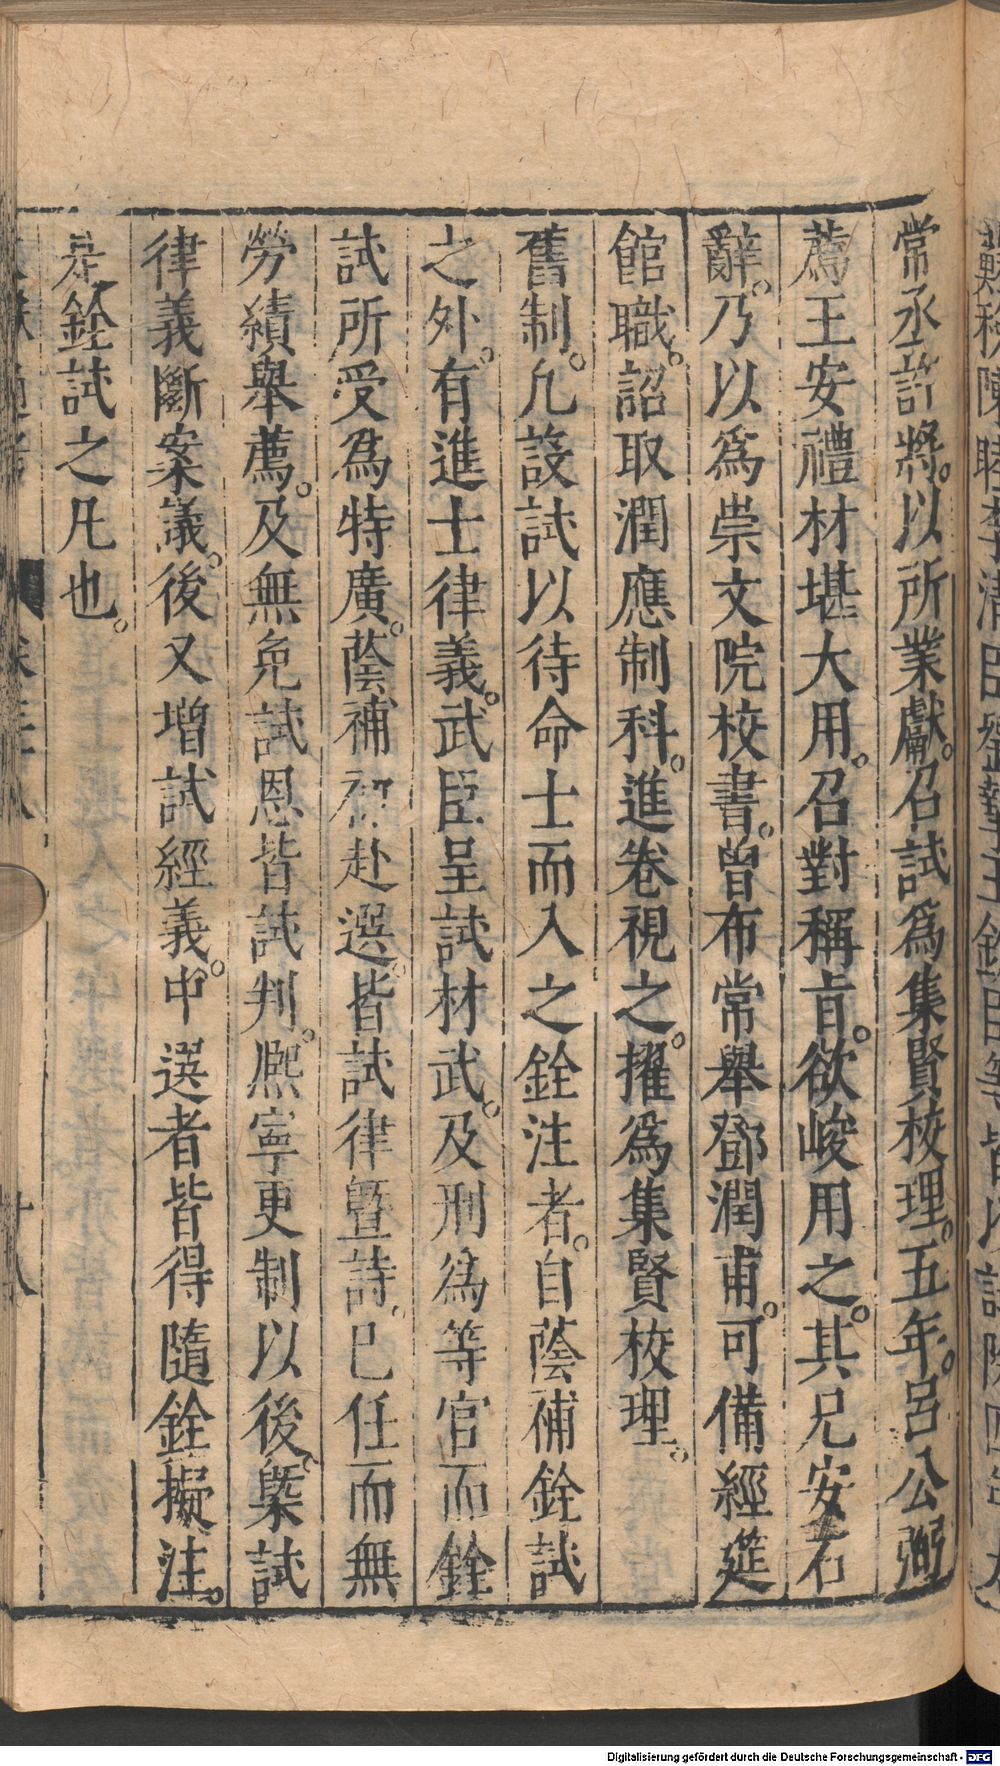 常丞許將。以所業獻。召試爲集賢校理。五年。呂公弼
薦王安禮材堪大用。召對稱旨。欲峻用之。其兄安石
辭。乃以爲崇文院校書。曾布常舉鄧潤甫。可備經筵
館職。詔取潤應制科。進卷視之。擢爲集賢校理。
舊制。凡設試以待命士而入之銓注者。自蔭補銓試
之外。有進士律義。武臣呈試材武。及刑爲等官而銓
試所受爲特廣。蔭補初赴選。皆試律曁詩。已任而無
勞績舉薦。及無免試恩皆試判。熈寧更制以後。槩試
律義斷案議。後又增試經義。中選者皆得隨銓擬注。
是銓試之凡也。
卷三十八
十八
Digitalisierung gefördert durch die Deutsche Forschungsgemeinschaft - DFG